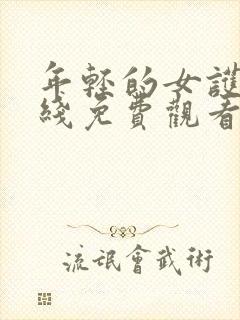 年輕的女護
綫免費觀看
流氓會武術